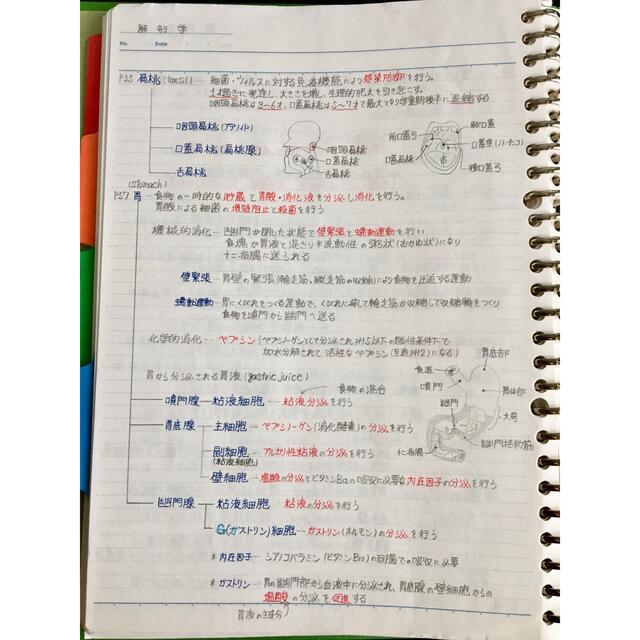 解剖学
No.
Date
P35 扁桃 (tonsil) ― 細菌・ウィルスに対する免疫機能により感染防御を行う。
1歳頃に発達し、大きさを増し、生理的肥大を引き起こす。
咽頭扁桃は3〜6才、口蓋扁桃は5〜7才で最大となり学童期後半に退縮する
咽頭扁桃 (アデノイド)
口蓋扁桃 (扁桃腺)
舌扁桃
咽頭扁桃
口蓋扁桃
舌扁桃
前口蓋弓
口蓋扁桃
舌
軟口蓋
口蓋垂
後口蓋弓
(stomach)
P57 胃 ― 食物の一時的な貯蔵と胃酸・消化液を分泌し消化を行う。
胃酸による細菌の増殖阻止と殺菌を行う
機械的消化 ― 幽門が閉じた状態で壁緊張と蠕動運動を行い
食塊が胃液と混ざり半流動性の粥状(おかゆ状)になり
十二指腸に送られる
壁緊張 ― 胃壁の緊張(輪走筋・縦走筋の収縮)により食物を圧迫する運動
蠕動運動 ― 胃にくびれをつくる運動で、くびれに接して輪走筋が収縮して収縮輪をつくり
食物を噴門から幽門へ送る
化学的消化 ― ペプシン(ペプシノーゲンとして分泌されPH5以下の酸性条件下で
加水分解されて活性なペプシン(至適PH2)になる)
胃から分泌される胃液 (gastric juice)
食物の混合
噴門腺 ― 粘液細胞 … 粘液分泌を行う
胃底腺 ― 主細胞 … ペプシノーゲン(消化酵素)の分泌を行う
副細胞 … アルカリ性粘液の分泌を行う
(粘液細胞)
壁細胞 … 塩酸の分泌とビタミンB12の吸収に必要な内在因子の分泌を行う
幽門腺 ― 粘液細胞 … 粘液の分泌を行う
G(ガストリン)細胞 … ガストリン(ホルモン)の分泌を行う
食道
噴門
幽門
十二指腸
胃底部
胃体部
大弯
幽門括約筋
* 内在因子 ― シアノコバラミン (ビタミンB12)の回腸での吸収に必要
* ガストリン ― 胃の幽門部から血液中に分泌され、胃底腺の壁細胞からの
塩酸の分泌を促進する
胃液の主成分